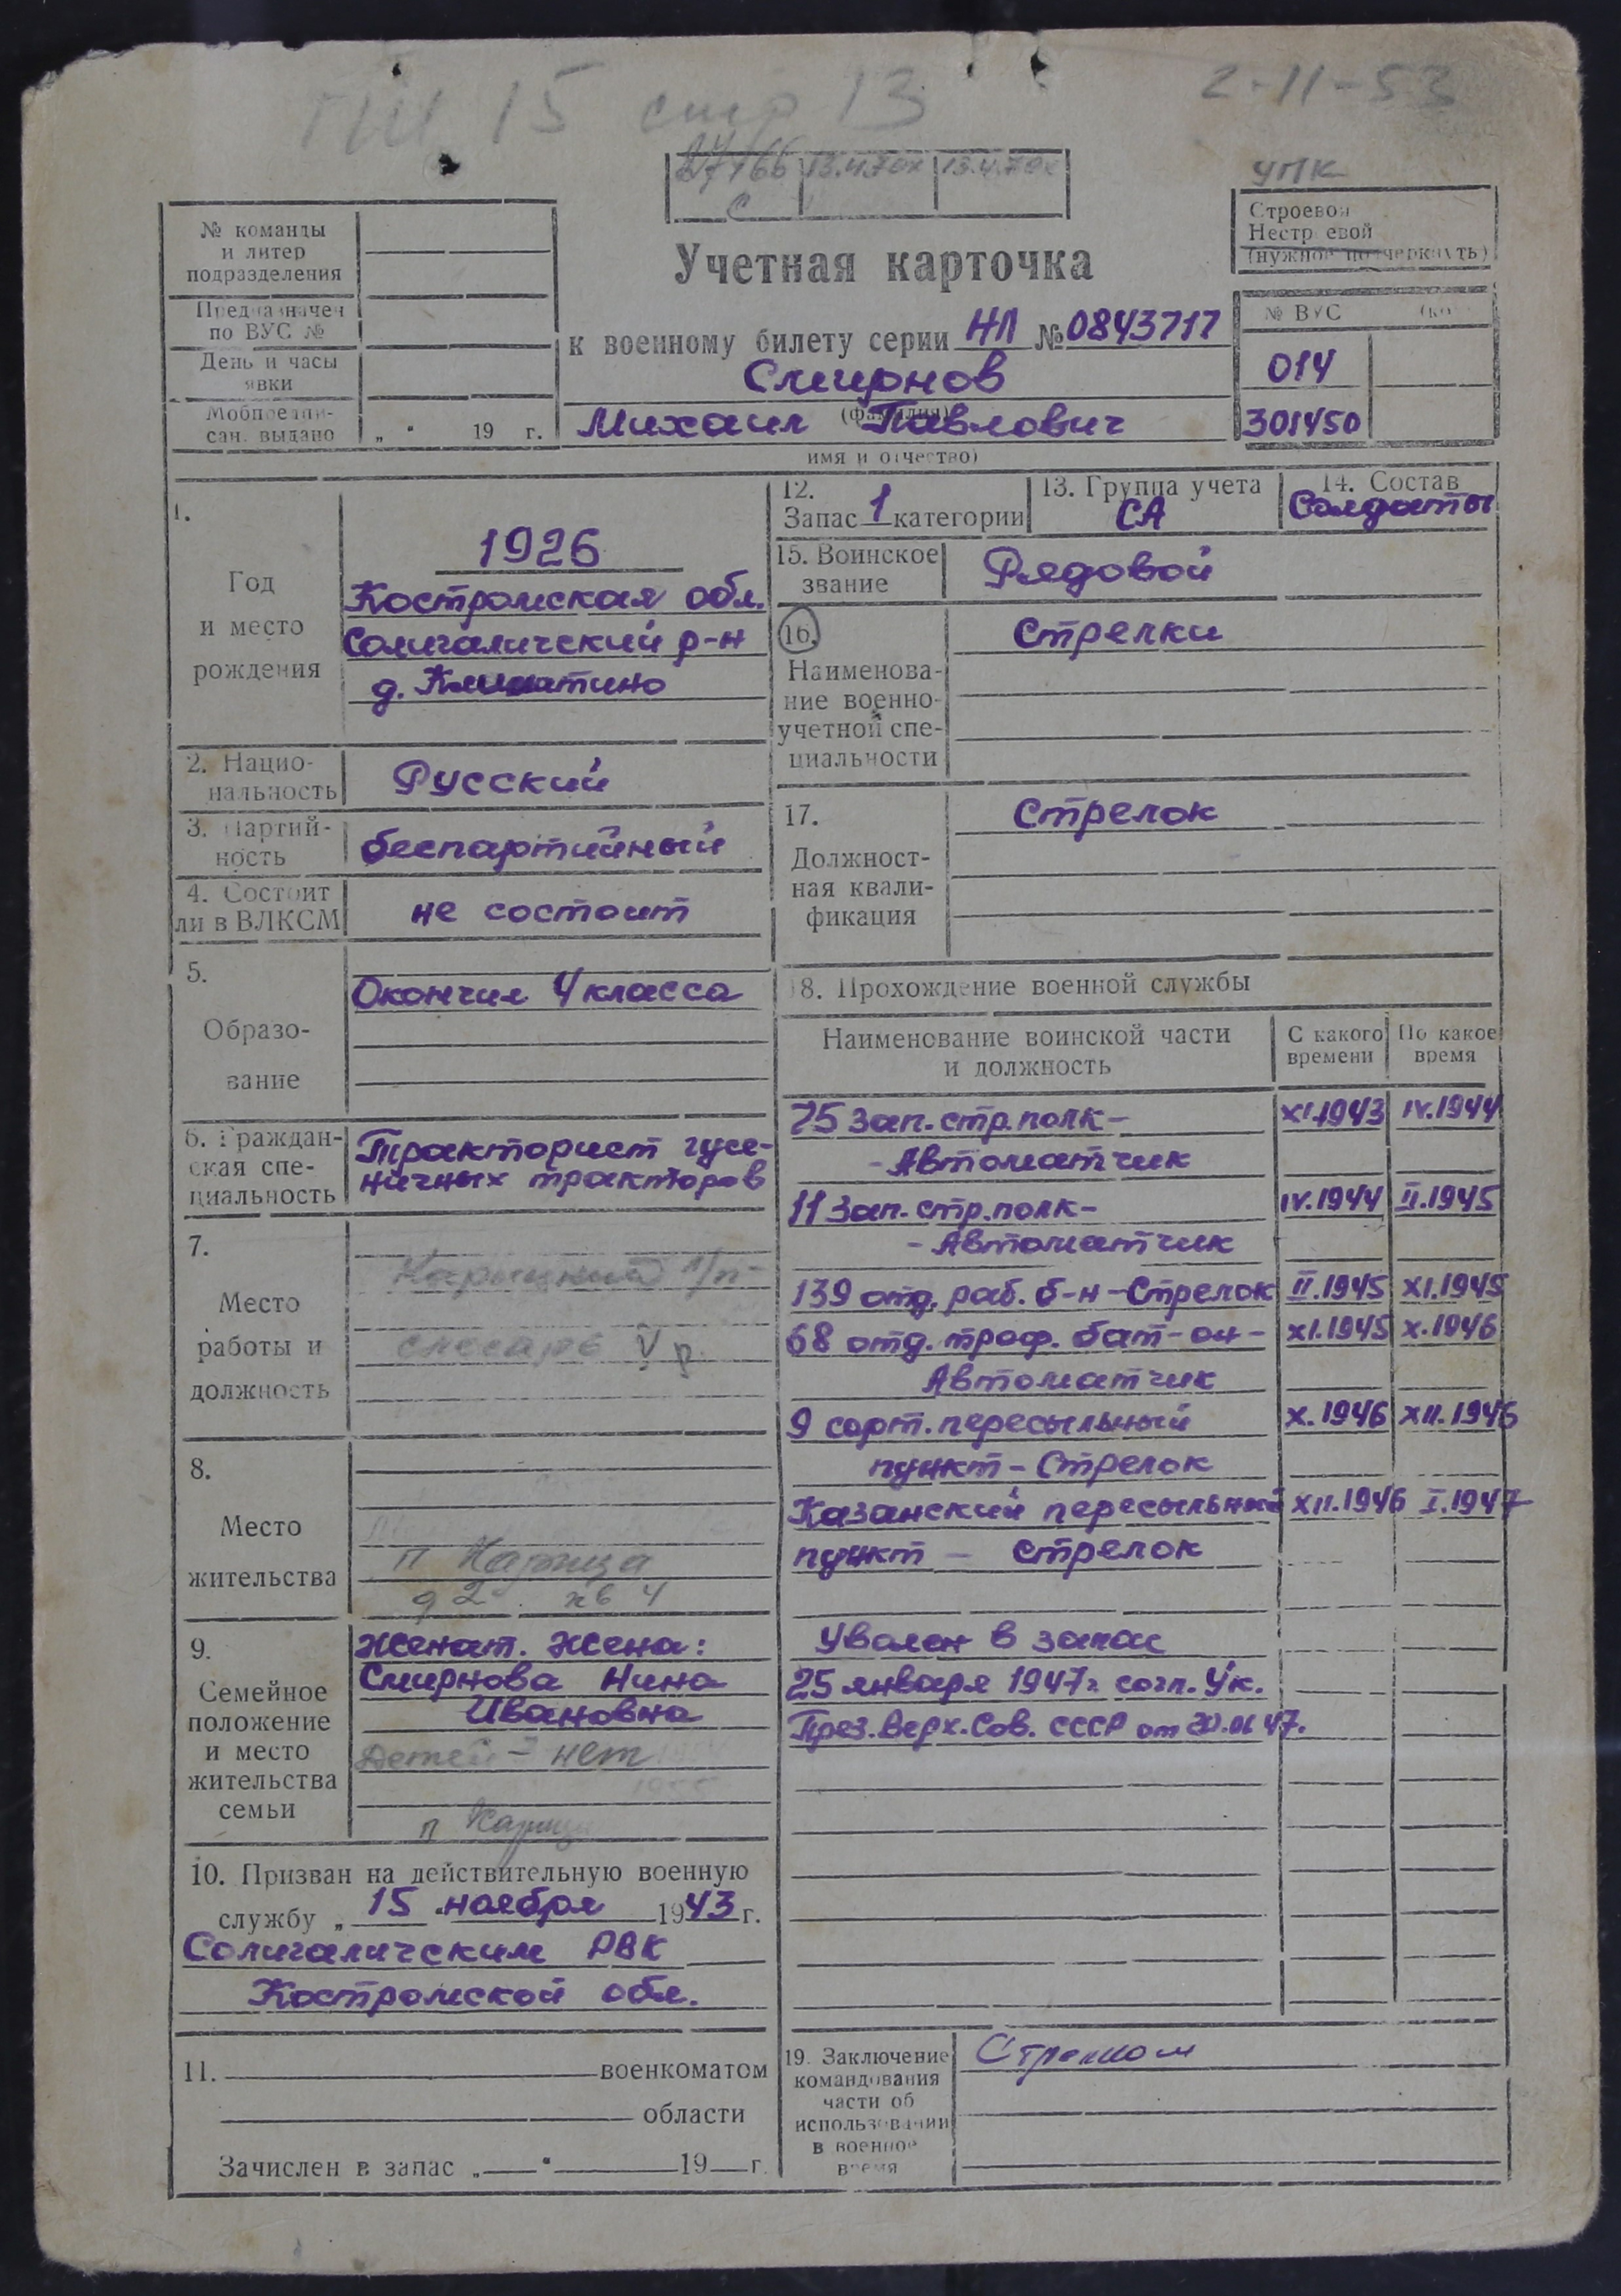 стр 13
2-11-53
УПК
Строевой
Нестроевой
(нужное подчеркнуть)
№ команды
и литер
подразделения
Предназначен
по ВУС №
День и часы
явки
Мобпредпи-
сан. выдано „ “ 19 г.
Учетная карточка
к военному билету серии НЛ № 0843717
Смирнов
(фамилия)
Михаил Павлович
имя и отчество)
№ ВУС
014
301450
1.
Год
и место
рождения
1926
Костромская обл.
Солигаличский р-н
2. Нацио-
нальность
Русский
3. Партий-
ность
беспартийный
4. Состоит
ли в ВЛКСМ
не состоит
5.
Образо-
вание
Окончил 4 класса
6. Граждан-
ская спе-
циальность
Тракторист гусе-
ничных тракторов
7.
Место
работы и
должность
слесарь V р.
8.
Место
жительства
п Карица
д 2 кв 4
9.
Семейное
положение
и место
жительства
семьи
Женат. Жена:
Смирнова Нина
Ивановна
Детей - нет
1955
п Карица
10. Призван на действительную военную
службу „ 15 “ ноября 1943 г.
Солигаличским РВК
Костромской обл.
11. военкоматом
области
Зачислен в запас „ “ 19 г.
12.
Запас 1 категории
13. Группа учета
СА
14. Состав
Солдаты
15. Воинское
звание
Рядовой
16.
Наименова-
ние военно-
учетной спе-
циальности
Стрелки
17.
Должност-
ная квали-
фикация
Стрелок
18. Прохождение военной службы
Наименование воинской части
и должность
С какого
времени
По какое
время
25 зап. стр. полк- XI.1943 IV.1944
- Автоматчик
11 зап. стр. полк- IV.1944 II.1945
- Автоматчик
139 отд. раб. б-н - Стрелок II.1945 XI.1945
68 отд. троф. бат-он - XI.1945 X.1946
Автоматчик
9 сорт. пересыльный X.1946 XII.1946
пункт - Стрелок
Казанский пересыльный XII.1946 I.1947
пункт - стрелок
Уволен в запас
25 января 1947г согл. Ук.
През. Верх. Сов. СССР от
19. Заключение
командования
части об
использовании
в военное
время
Стрелком